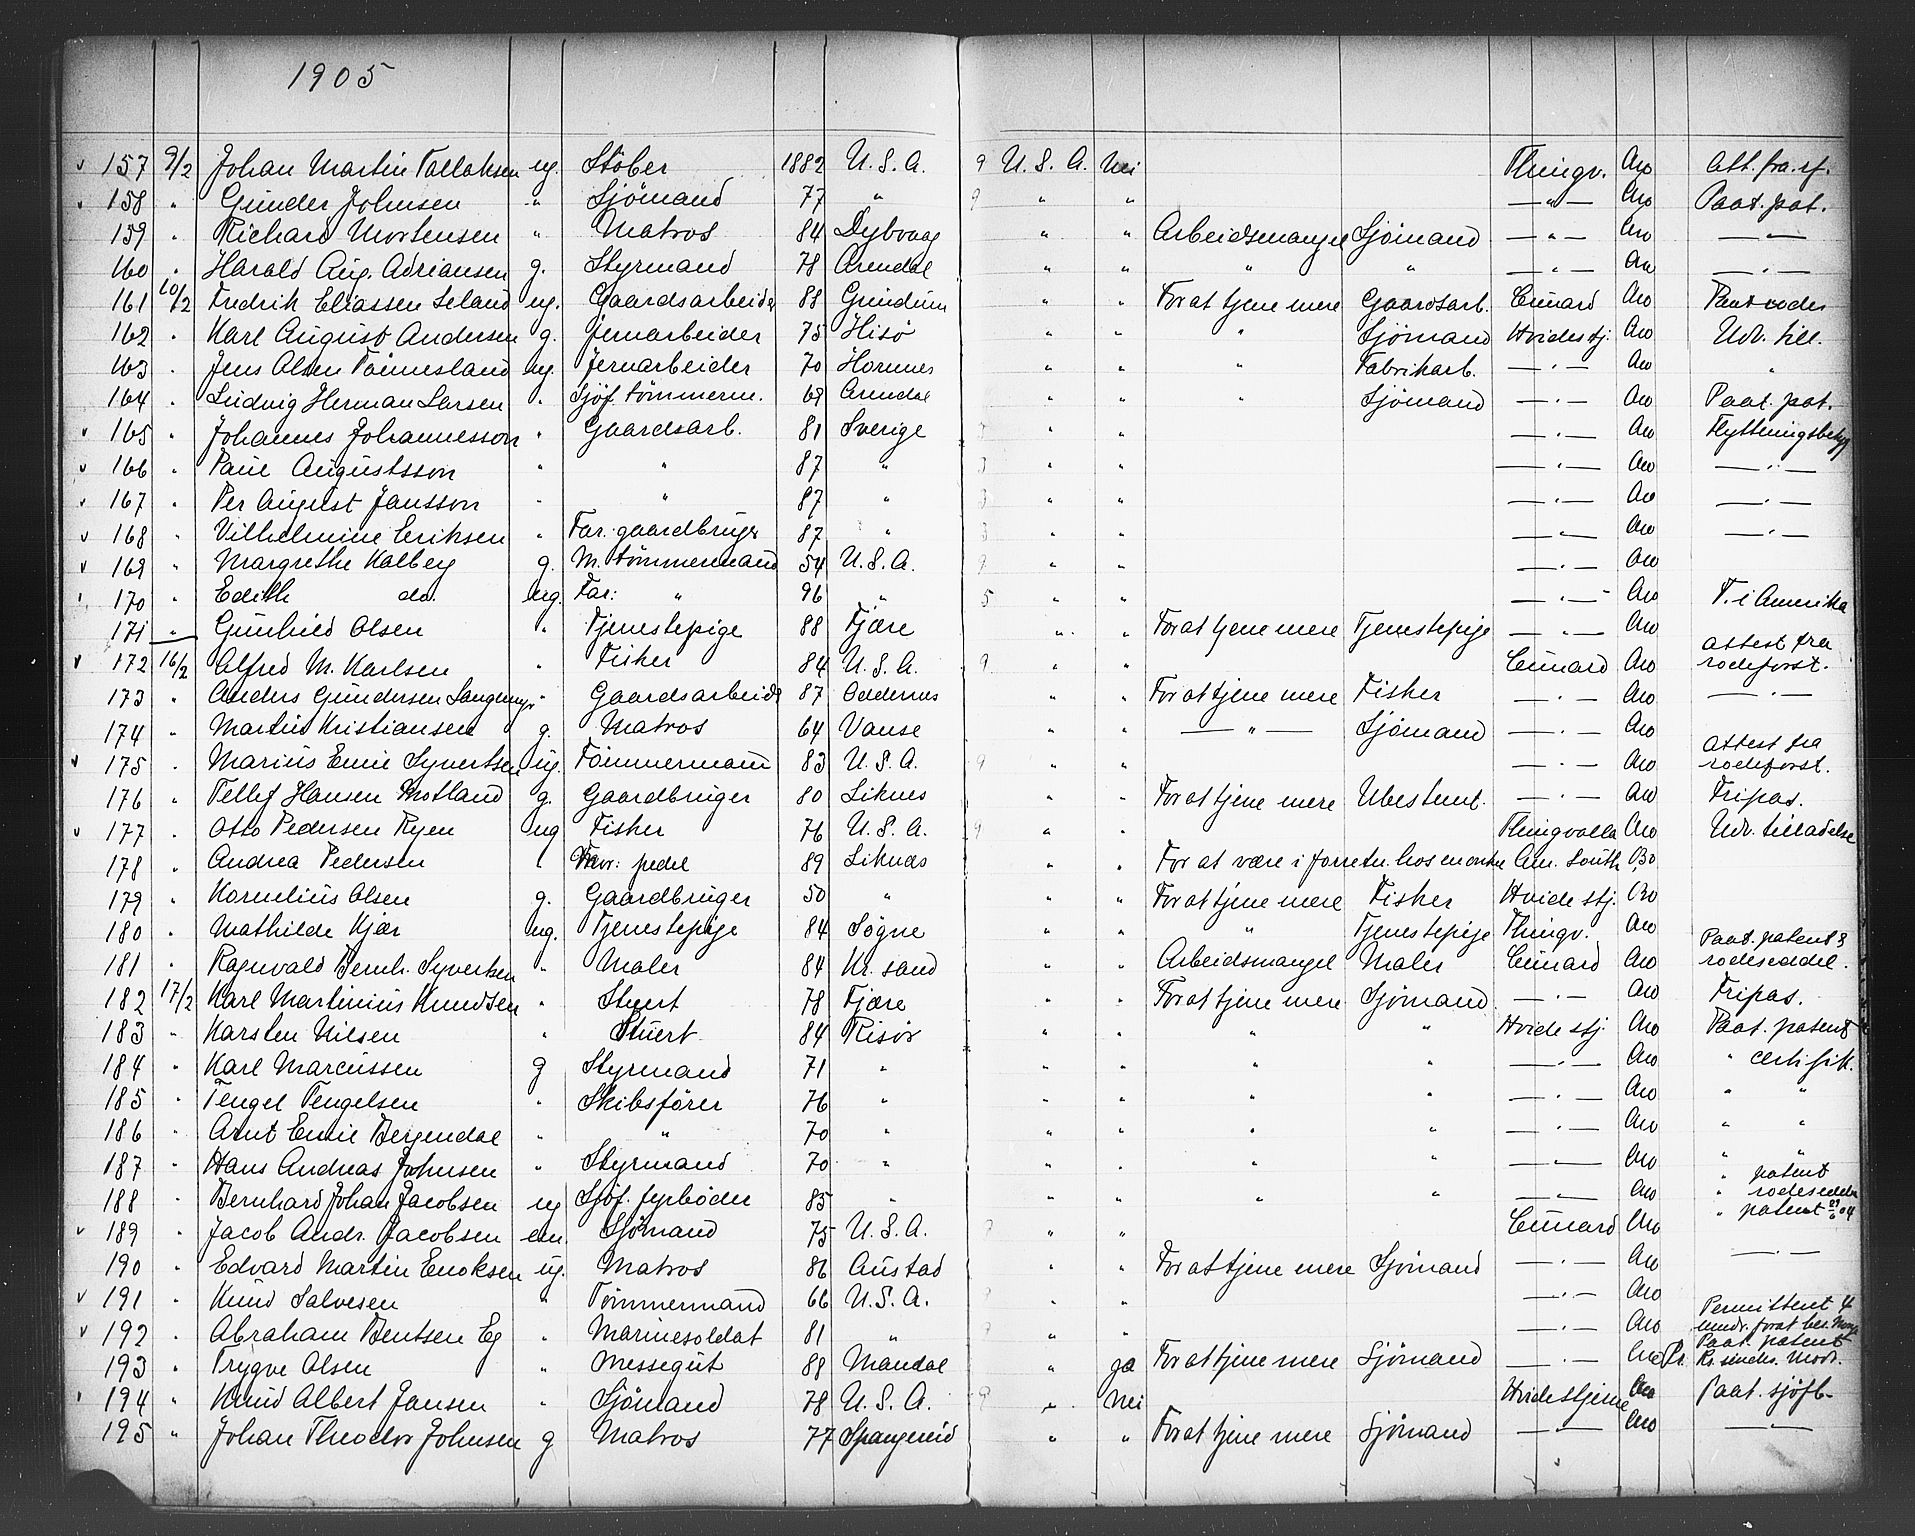 1905
157 9/2 Johan Martin Tallaksen ug. Støber 1882 U.S.A. 9 U.S.A. Nei Thingv. Aro Att. fra. sf.
158 " Gunder Johnsen " Sjömand 77 " 9 " " —"— Aro Paat. pat.
159 " Richard Mortensen " Matros 84 Dybvaag " " Arbeidsmangel Sjömand —"— Aro —"—
160 " Harald Aug. Adriansen g. Styrmand 78 Arendal " " " " —"— Aro —"—
161 10/2 Fredrik Eliassen Seland ug. Gaardsarbeider 88 " " For at tjene mere Gaardsarb. Cunard Aro
162 " Karl August Andersen g. Jernarbeider 75 Hisö " " " Sjömand Hvidestj. Aro Udv. till.
163 " Jens Olsen Tönnesland ug. Jernarbeider 70 Hornnes " " " Fabrikarb. —"— Aro "
164 " Ludvig Herman Larsen " Sjöf. tömmerm. 69 Arendal " " " Sjömand —"— Aro Paat. pat.
165 " Johannes Johannesson " Gaardsarb. 81 Sverige 3 " " —"— Aro Flyttningsbetyg
166 " Paul Augustsson " " 87 " 3 " " —"— Aro —"—
167 " Per August Jansson " " 87 " 3 " " —"— Aro —"—
168 " Vilhelmine Eriksen " Far: gaardbruger 87 " 3 " " —"— Aro —"—
169 " Margrethe Kalberg g. M. tömmermand 54 U.S.A. 9 " " —"— Aro
170 " Edith do. ug. Far: " 96 " 5 " " —"— Aro F. i Amerika
171 " Gunhild Olsen " Tjenestepige 88 Fjære " " For at tjene mere Tjenestepige —"— Aro
172 16/2 Alfred M. Karlsen " Fisker 84 U.S.A. 9 " " Cunard Aro attest fra rodeforst.
173 " Anders Gundersen Langemyr " Gaardsarbeider 87 Oddernes " " For at tjene mere Fisker —"— Aro —"—
174 " Martin Kristiansen g. Matros 64 Vanse " " —"— Sjömand —"— Aro
175 " Marius Emil Syvertsen ug. Tömmermand 83 U.S.A. 9 " " —"— Aro attest fra rodeforst.
176 " Tellef Hansen g. Gaardbruger 80 Liknes " " For at tjene mere Ubestemt. —"— Aro Fripas.
177 " Otto Pedersen Ryen ug Fisker 76 U.S.A. 9 " " Thingvalla Aro Udv. tilladelse
178 " Andrea Pedersen " Far: pedel 89 Liknes " " For at være i forretn. hos en onkel Am. South. Bo
179 " Kornelius Olsen g. Gaardbruger 50 " " " For at tjene mere Fisker Hvide stj. Bo
180 " Mathilde Kjær ug. Tjenestepige 84 Søgne " " " Tjenestepige Thingv. Aro
181 " Ragnvald Bernh. Syvertsen " Maler 84 Kr. sand " " Arbeidsmangel Maler Cunard Aro Paat. patent & rodeseddel.
182 17/2 Karl Martinius Knudsen " Stuert 78 Fjære " " For at tjene mere Sjömand —"— Aro Fripas.
183 " Karsten Nilsen " Stuert 84 Risör " " " " Hvide stj. Aro Paat. patent
184 " Karl Marcussen g Styrmand 71 " " " " " —"— Aro " certifik.
185 " Tengel Tengelsen " Skibsförer 76 " " " " " —"— Aro " "
186 " Arnt Emil Bergendal " " 70 " " " " " —"— Aro " "
187 " Hans Andreas Johnsen " Styrmand 70 " " " " " —"— Aro " "
188 " Bernhard Johan Jacobsen ug Sjöf. fyrböder 85 " " " " " —"— Aro " patent " rodeseddel
189 " Jacob Andr. Jacobsen em. Sjömand 75 U.S.A. 9 " " Cunard Aro " patent 04
190 " Edvard Martin Enoksen ug. Matros 86 Austad " " For at tjene mere Sjömand —"— Aro —"—
191 " Knud Salvesen " Tömmermand 66 U.S.A. 9 " " —"— Aro
192 " Abraham Bentsen Eg " Marinesoldat 81 " 9 " " —"— Aro Permittent 4 mndr. forat bes. Norge
193 " Trygve Olsen " Messegut 88 Mandal " ja For at tjene mere Sjömand —"— Aro Paat. patent
194 " Knud Albert Jansen " Sjömand 78 U.S.A. 9 " Nei Hvidestjerne Aro Paat. sjöfb.
195 " Johan Theodor Johnsen g Matros 77 Spangereid " " For at tjene mere Sjömand —"— Aro —"—